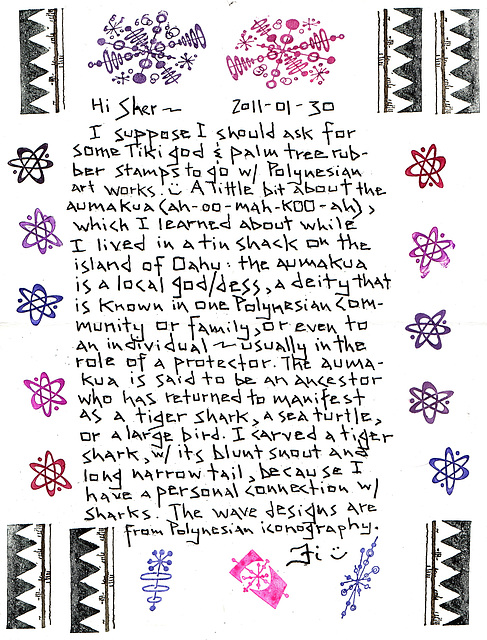 Hi Sher~ 2011-01-30
I suppose I should ask for
some Tiki god & palm tree rub-
ber stamps to go w/ Polynesian
art works! A little bit about the
aumakua (ah-oo-mah-KOO-ah),
which I learned about while
I lived in a tin shack on the
island of Oahu: the aumakua
is a local god/dess, a deity that
is known in one Polynesian com-
munity or family, or even to
an individual ~ usually in the
role of a protector. The auma-
kua is said to be an ancestor
who has returned to manifest
as a tiger shark, a sea turtle,
or a large bird. I carved a tiger
shark, w/ its blunt snout and
long narrow tail, because I
have a personal connection w/
sharks. The wave designs are
from Polynesian iconography.
Fi